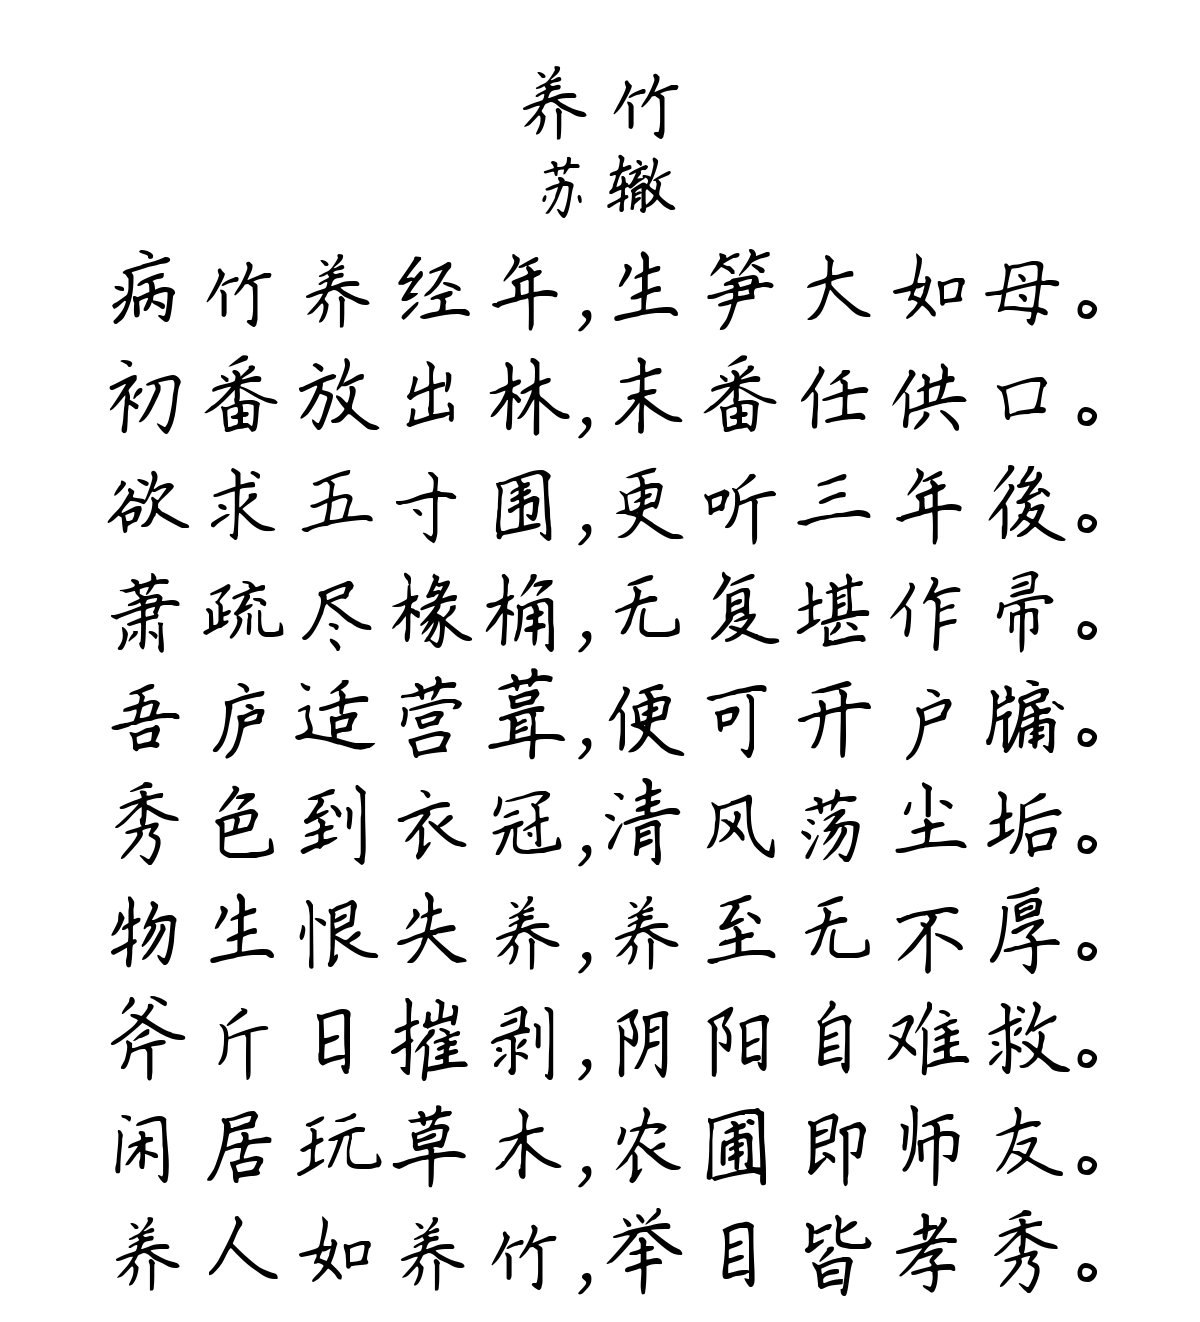 养竹
苏辙
病竹养经年,生笋大如母。
初番放出林,末番任供口。
欲求五寸围,更听三年後。
萧疏尽椽桷,无复堪作帚。
吾庐适营葺,便可开户牖。
秀色到衣冠,清风荡尘垢。
物生恨失养,养至无不厚。
斧斤日摧剥,阴阳自难救。
闲居玩草木,农圃即师友。
养人如养竹,举目皆孝秀。